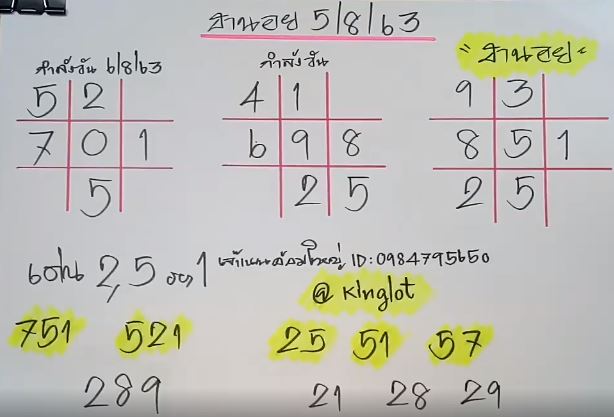 ฮานอย 5/8/63
กำลังวัน 6/8/63
กำลังวัน
"ฮานอย"
5 2
7 0 1
5
4 1
6 9 8
2 5
9 3
8 5 1
2 5
เด่น 2,5 รอง 1
ID:0984795650
@ Kinglot
751 521 25 51 57
289 21 28 29